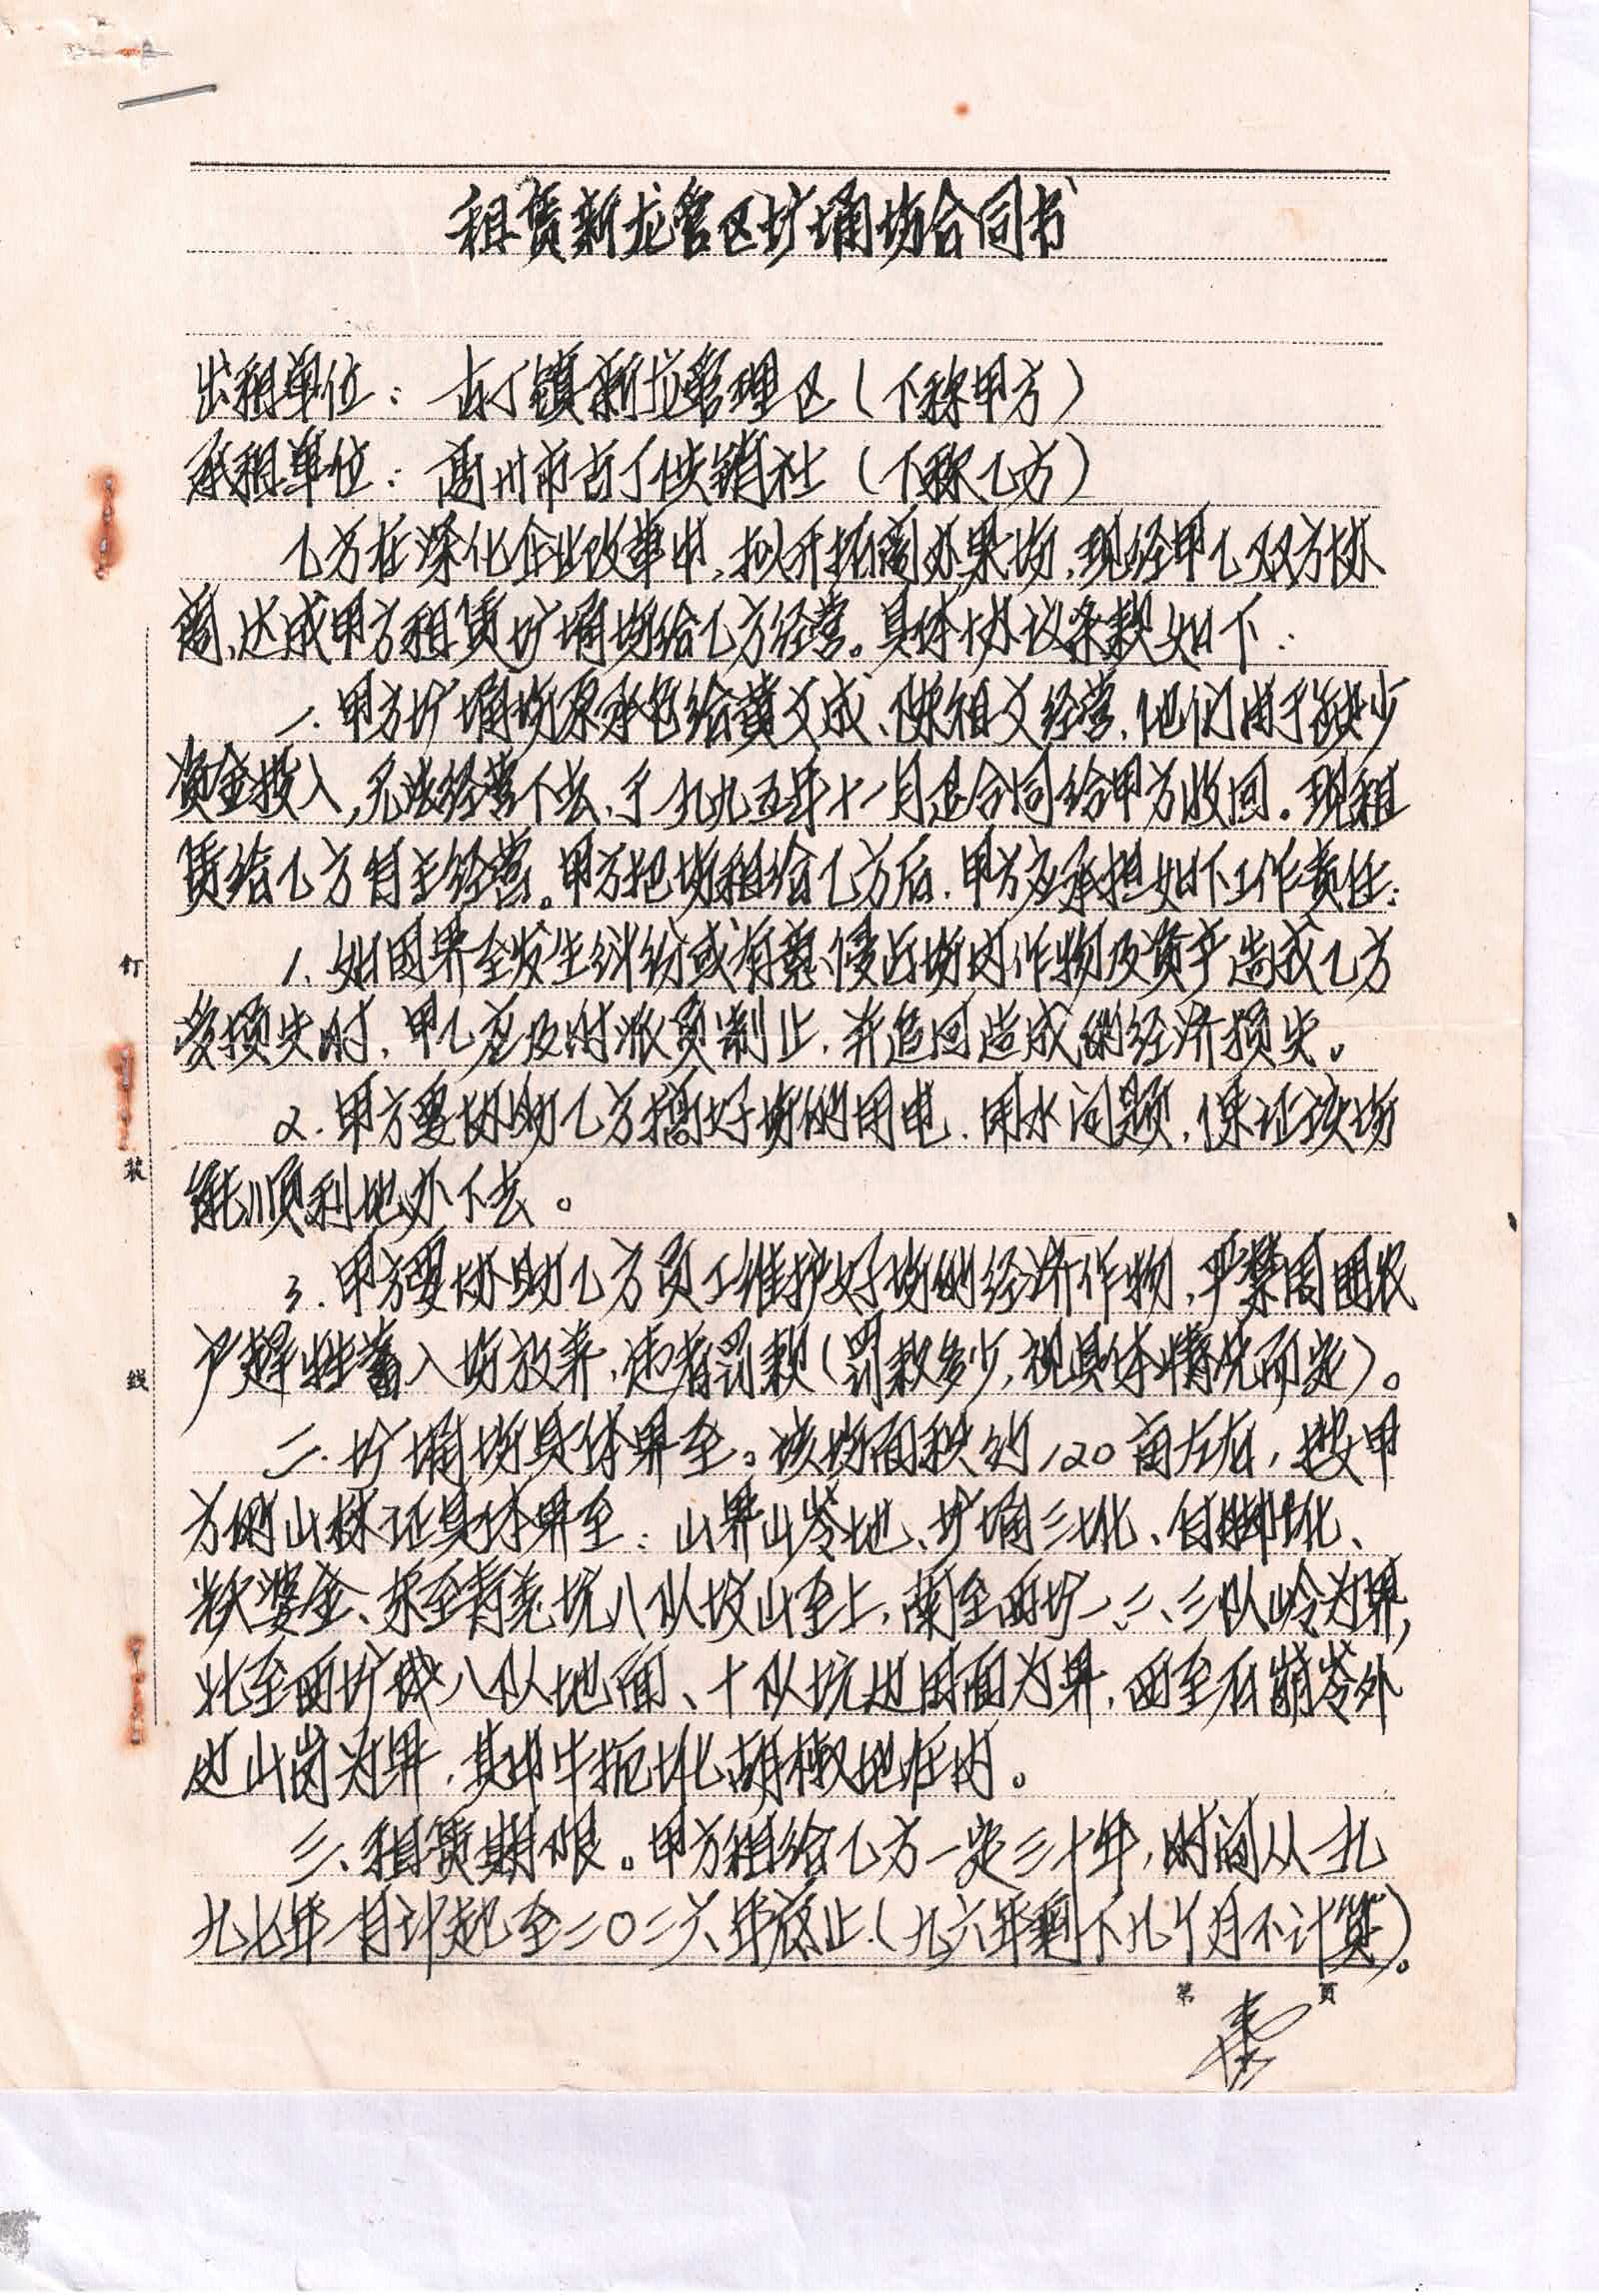 租赁新龙管区圹埇场合同书
出租单位：古丁镇新龙管理区（下称甲方）
承租单位：高州市古丁供销社（下称乙方）
乙方在深化企业改革中，拟开拓创办果场，现经甲乙双方协
商，达成甲方租赁圹埇场给乙方经营。具体协议条款如下：
一、甲方圹埇场原承包给黄文成、陈祖文经营，他们由于缺少
资金投入，无法经营下去，于一九九五年十一月退合同给甲方收回。现租
赁给乙方自主经营。甲方把场租给乙方后，甲方应承担如下工作责任：
1、如因界至发生纠纷或有意侵占场内作物及资产造成乙方
受损失时，甲乙应及时派员制止，并追回造成的经济损失。
2、甲方要协助乙方搞好场的用电、用水问题，保证该场
能顺利地办下去。
3、甲方要协助乙方员工维护好场的经济作物，严禁周围农
户赶牲畜入场放养，违者罚款（罚款多少，视具体情况而定）。
二、圹埇场具体界至。该场面积约120亩左右，按甲
方的山林证具体界至：山界山岺地、圹埇三化、自脚化、
婆金、东至青坑八队坟山至上，南至西圹一、二、三队岭为界，
北至西圹队八队地面、十队坑边田面为界，西至石崩岺外
边山岗为界，其中牛扼化胡椒地在内。
三、租赁期限。甲方租给乙方一定三十年，时间从一九
九七年一月计起至二〇二六年底止（九六年剩下几个月不计算）。
第 页
订
装
线